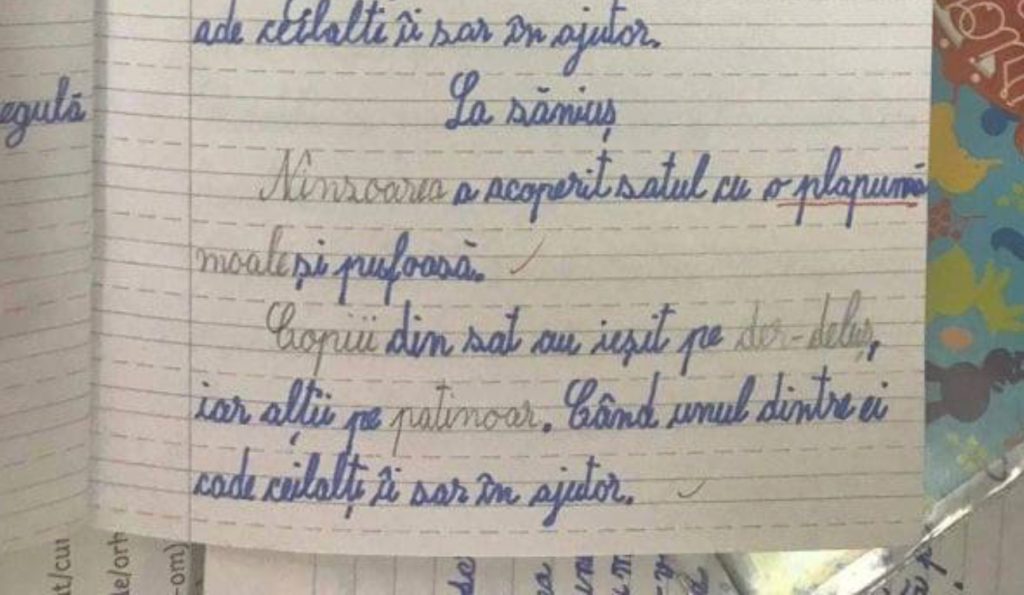 ade ceilalți îi sar în ajutor.
egulă
La săniuș
Ninsoarea a acoperit satul cu o plapumă
moale și pufoasă.
Copiii din sat au ieșit pe der-deluș,
iar alții pe patinoar. Când unul dintre ei
cade ceilalți îi sar în ajutor.
t/cui
de/ort
-om)
se
ea